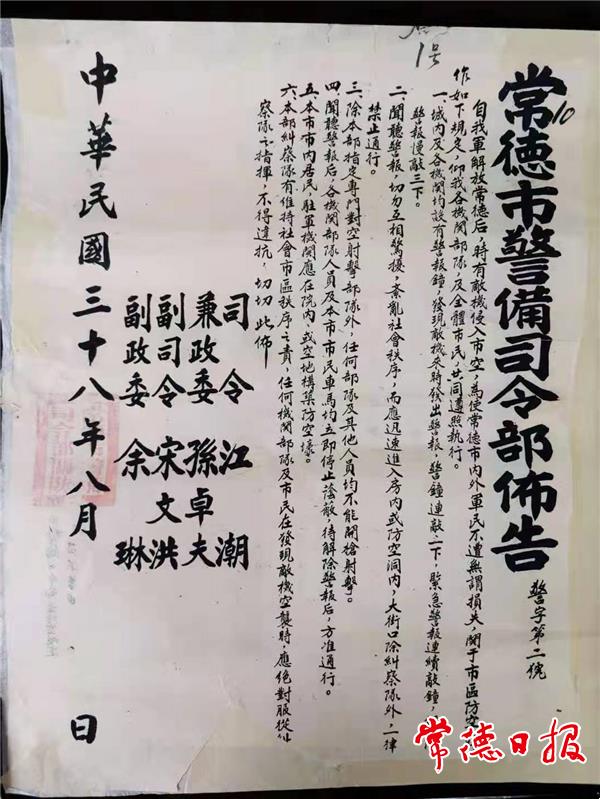 1号
10
常德市警備司令部佈告
警字第二號
自我軍解放常德后，時有敵機侵入市空，為使常德市内外軍民不遭無謂損失，関于市区防空
作如下規定，仰我各機関部隊，及全體市民，共同遵照執行。
一、城内及各機関均設有警報鐘，發現敵機来時發出警報，警鐘連敲二下，緊急警報連續敲鐘，
警報慢敲三下。
二、聞聽警報，切勿互相驚擾，紊亂社會秩序，而應迅速進入房内或防空洞内，大街口除糾察隊外，一律
禁止通行。
三、除本部指定專門對空射擊部隊外，任何部隊及其他人員均不能開槍射擊。
四、聞聽警報后，各機関部隊人員及本市市民車馬均立即停止蔭蔽，待解除警報后，方准通行。
五、本市市内居民，駐軍機関應在院内，或空地構築防空壕。
六、本部糾察隊有維持社會市區秩序之責，任何機関部隊及市民在發現敵機空襲時，應絕對服從糾
察隊之指揮，不得違抗，切切此佈
司令 江潮
兼政委 孫卓夫
副司令 宋文洪
副政委 余琳
中華民國三十八年八月 日
常德日报